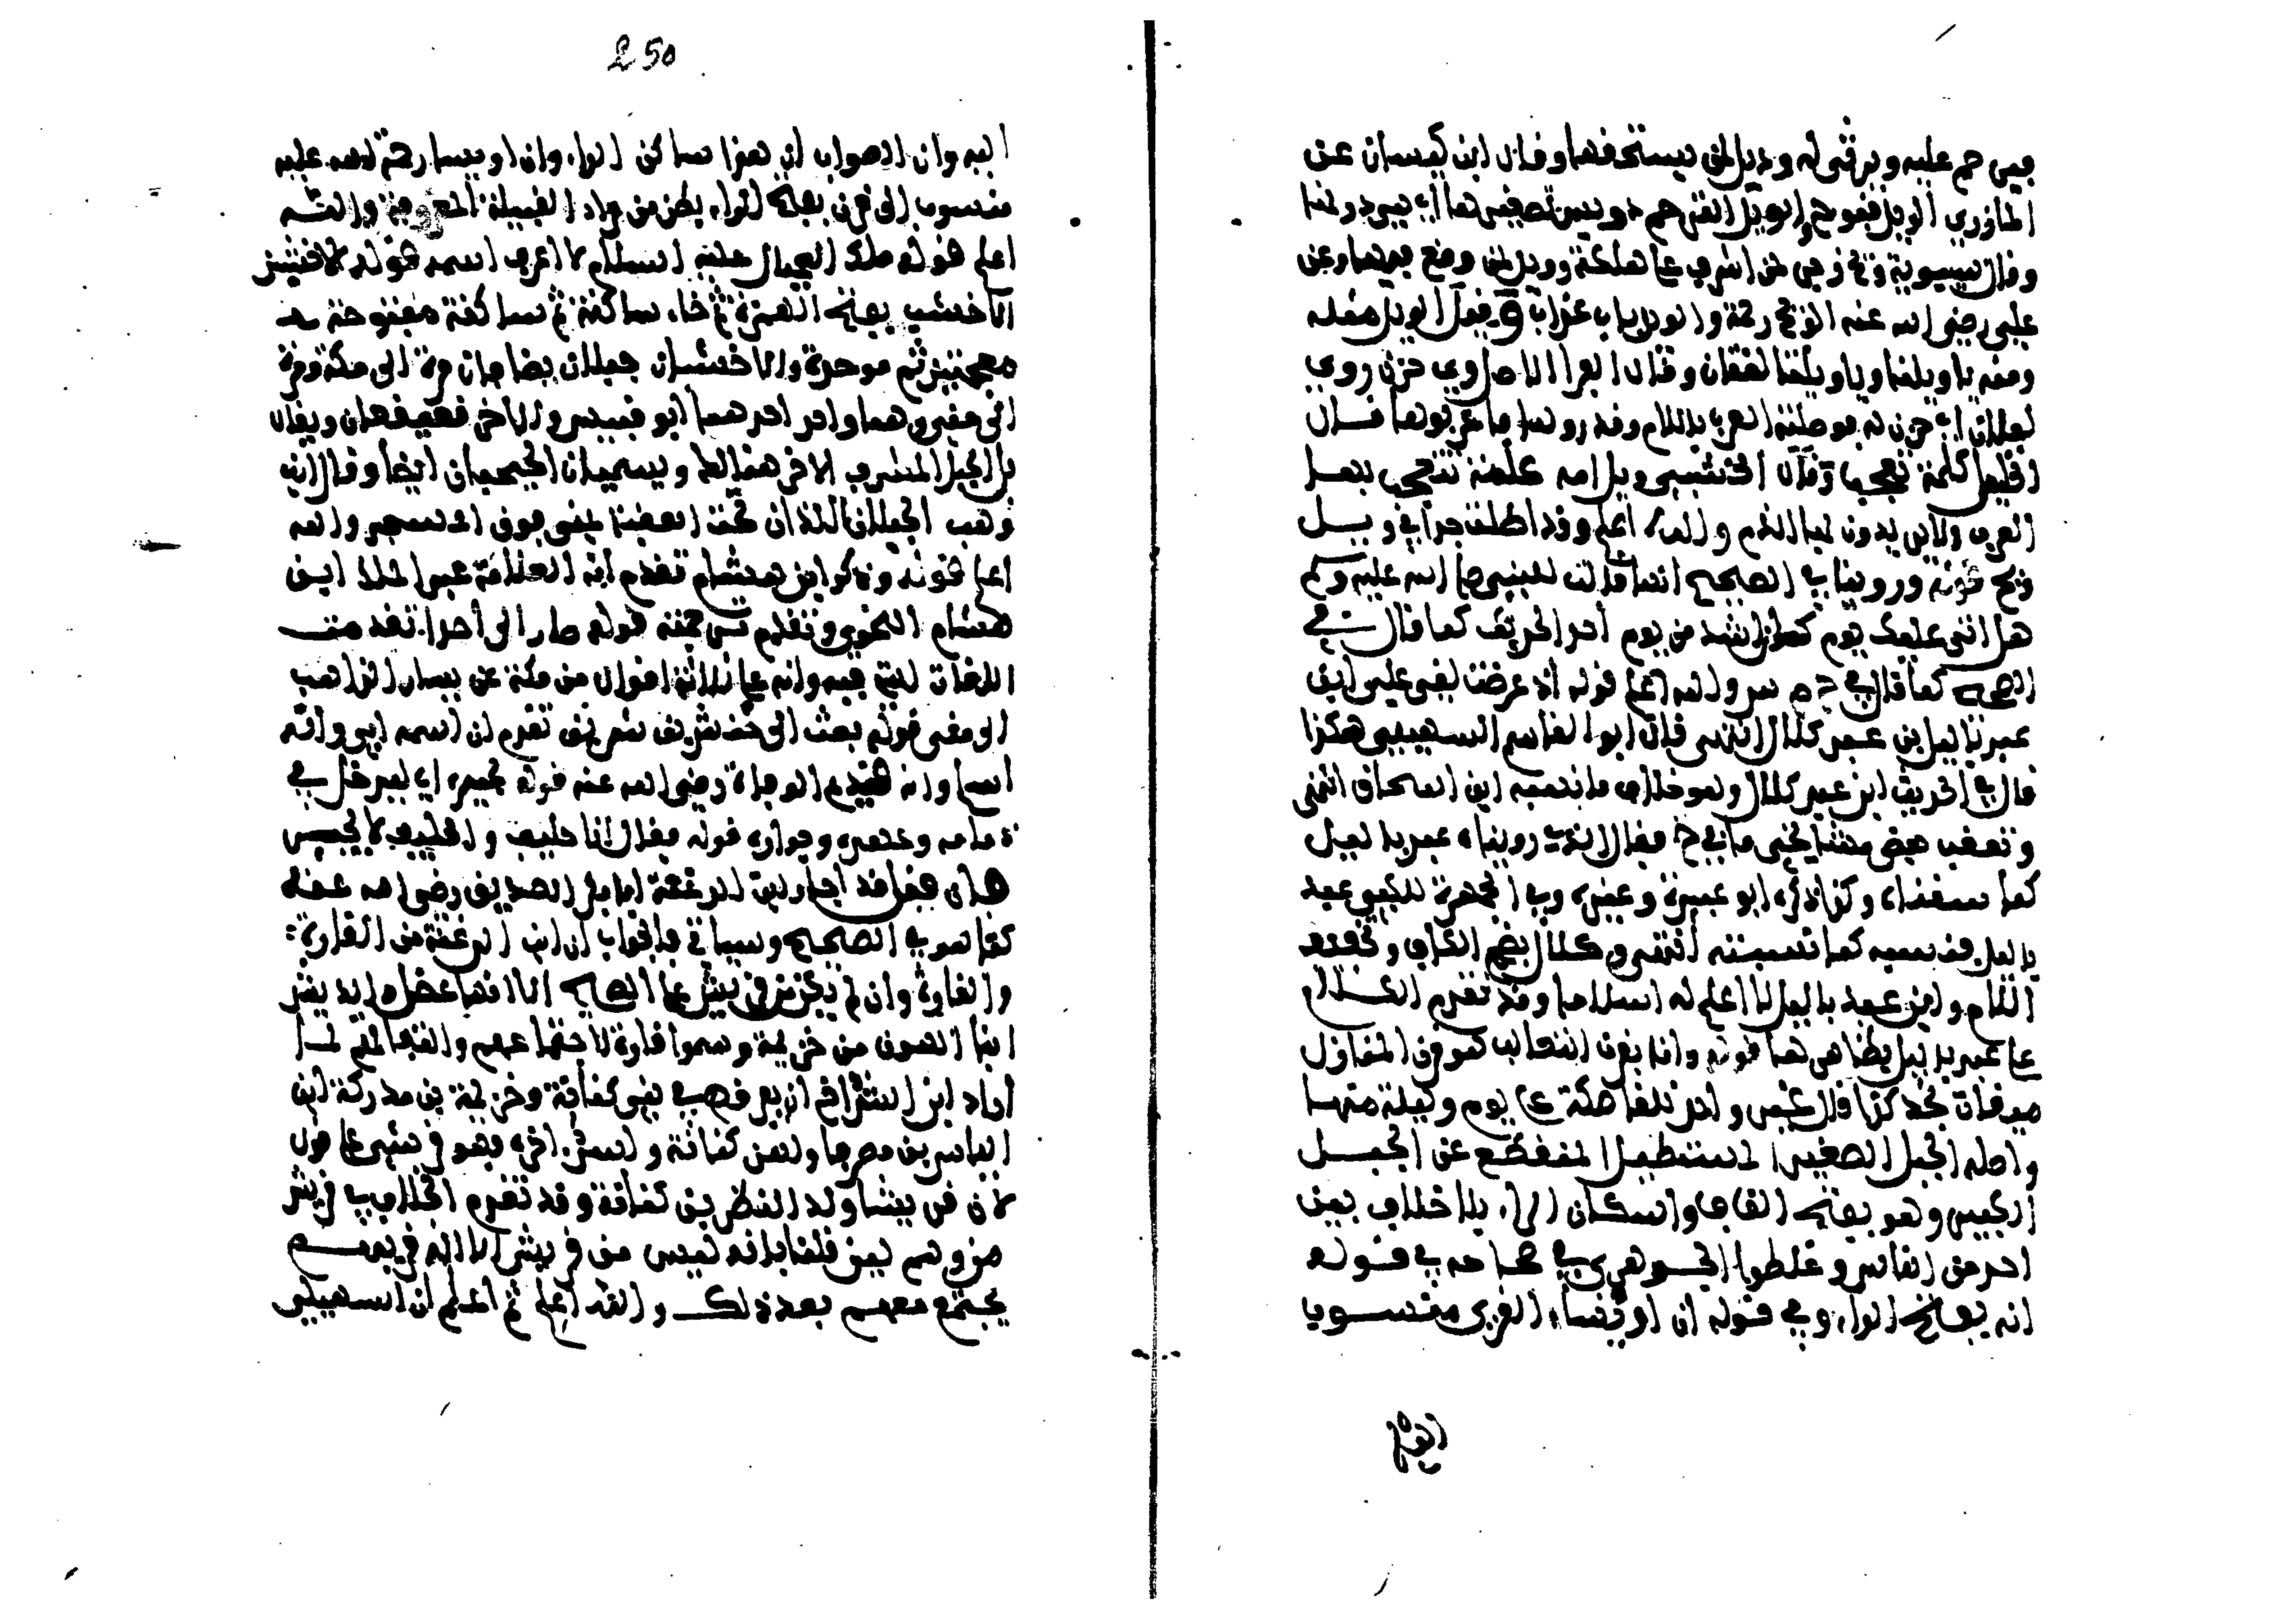 فيرحم عليه ويرثى له وويل لمن يستحقها وقال ابن كيسان عن
المازري الويل قبوح والويل الترحم وويس تصغيرها أي هي دونها
وقال سيبويه ويح زجر لمن أشرف على هلكة وويل لمن وقع فيها وعن
علي رضي الله عنه الويح رحمة والويل باب عذاب ويقال الويل
ومنه يا ويلنا ويا ويلتا لغتان وقال الفرا الاصل وي حزن روي
لفلان اي حزن له فوصلته العرب باللام وقدروها منها فاعربوها قال
الخليل كلمة تعجب وقال الخشني ويل امه كلمة تتعجب بها
العرب ولا يريدون بها الذم والله اعلم وقد اطلت جدا في ويل
ويح قوله وروينا في الصحيح انها قالت للنبي صلى الله عليه وسلم
هل اتى عليك يوم كان اشد من يوم أحد الحديث كما قال في
كما قال في خ م س والله اعلم قوله اذ عرضت نفسي على ابن
عبد ياليل بن عبد كلال الناس قال ابو القاسم السهيلي هكذا
قال في الحديث ابن عبد كلال وهو خلاف ما نسبه ابن اسحاق انتهى
وتعقب بعض مشايخي ما في خ فقال الذي رويناه عبد ياليل
كما سقناه وكذا ذكره ابو عبيدة وغيره وفي الجمهرة للكلبي عبد
ياليل فنسبه كما نسبته انتهى وكلال بضم الكاف وتخفيف
اللام وابن عبد ياليل لا اعلم له اسلاما وقد تقدم الكلام
على عبد ياليل بظاهرها قوله وانا بقرن الثعالب هو قرن المنازل
ميقات نجد كذا قال غير واحد تلقا مكة على يوم وليلة منها
واصله الجبل الصغير المستطيل المنقطع عن الجبل
الكبير وهو بفتح القاف واسكان الراء بلا خلاف بين
احد من الناس وغلطوا الجوهري في صحاحه في قوله
انه بفتح الراء وفي قوله ان اويسا القرني منسوب
اليه
250
اليه وان الصواب ان هذا ساكن الراء وان اويسا رحمة الله عليه
منسوب الى قرن بفتح الراء بطن من مراد القبيلة المعروفة والله
اعلم قوله ملك الجبال عليه السلام لا اعرف اسمه قوله الاخشبين
الاخشب بفتح الهمزة ثم خاء ساكنة ثم مفتوحة
معجمتين ثم موحدة والاخشبان جبلان يضافان مرة الى مكة ومرة
الى منى وهما واحد احدهما ابو قبيس والاخر قعيقعان ويقال
بل الجبل المشرف الاحمر هنالك ويسميان الجبجبان ايضا وقال ابن
وهب الجبلان اللذان تحت العقبة بمنى فوق المسجد والله
اعلم قوله وذكر ابن هشام تقدم انه العلامة عبد الملك ابن
هشام النحوي وتقدم ترجمته قوله صار الى حرا تقدمت
اللغات التي فيه وانه على ثلاثة اميال من مكة عن يسار الذاهب
الى منى قوله بعث الى الاخنس بن شريق تقدم ان اسمه ابي وانه
اسلم وانه قديم الوفاة رضي الله عنه قوله ليجيره اي ليدخل في
ذمامه وعهده وجواره قوله فقال انا حليف والحليف لا يجير
فان قيل قد اجار ابن الدغنة ابا بكر الصديق رضي الله عنه
كما هو في الصحيح وسياتي فالجواب ان ابن الدغنة من القارة
والقارة وان لم تكن من قريش على الصحيح الا انها عضل والديش
ابنا الهون من خزيمة وسموا قارة لاجتماعهم والتفافهم لما
اراد ابن الشداخ ان يفرقهم في بني كنانة وخزيمة بن مدركة بن
الياس بن مضر فاولدهن كنانة واسد اخره فهو قرشي على قول
لان قريشا ولد النضر بن كنانة وقد تقدم الخلاف في قريش
من هم فان قلنا بانه ليس من قريش الا انه قريبهم
يجتمع معهم بعد ذلك والله اعلم ثم اعلم ان السهيلي